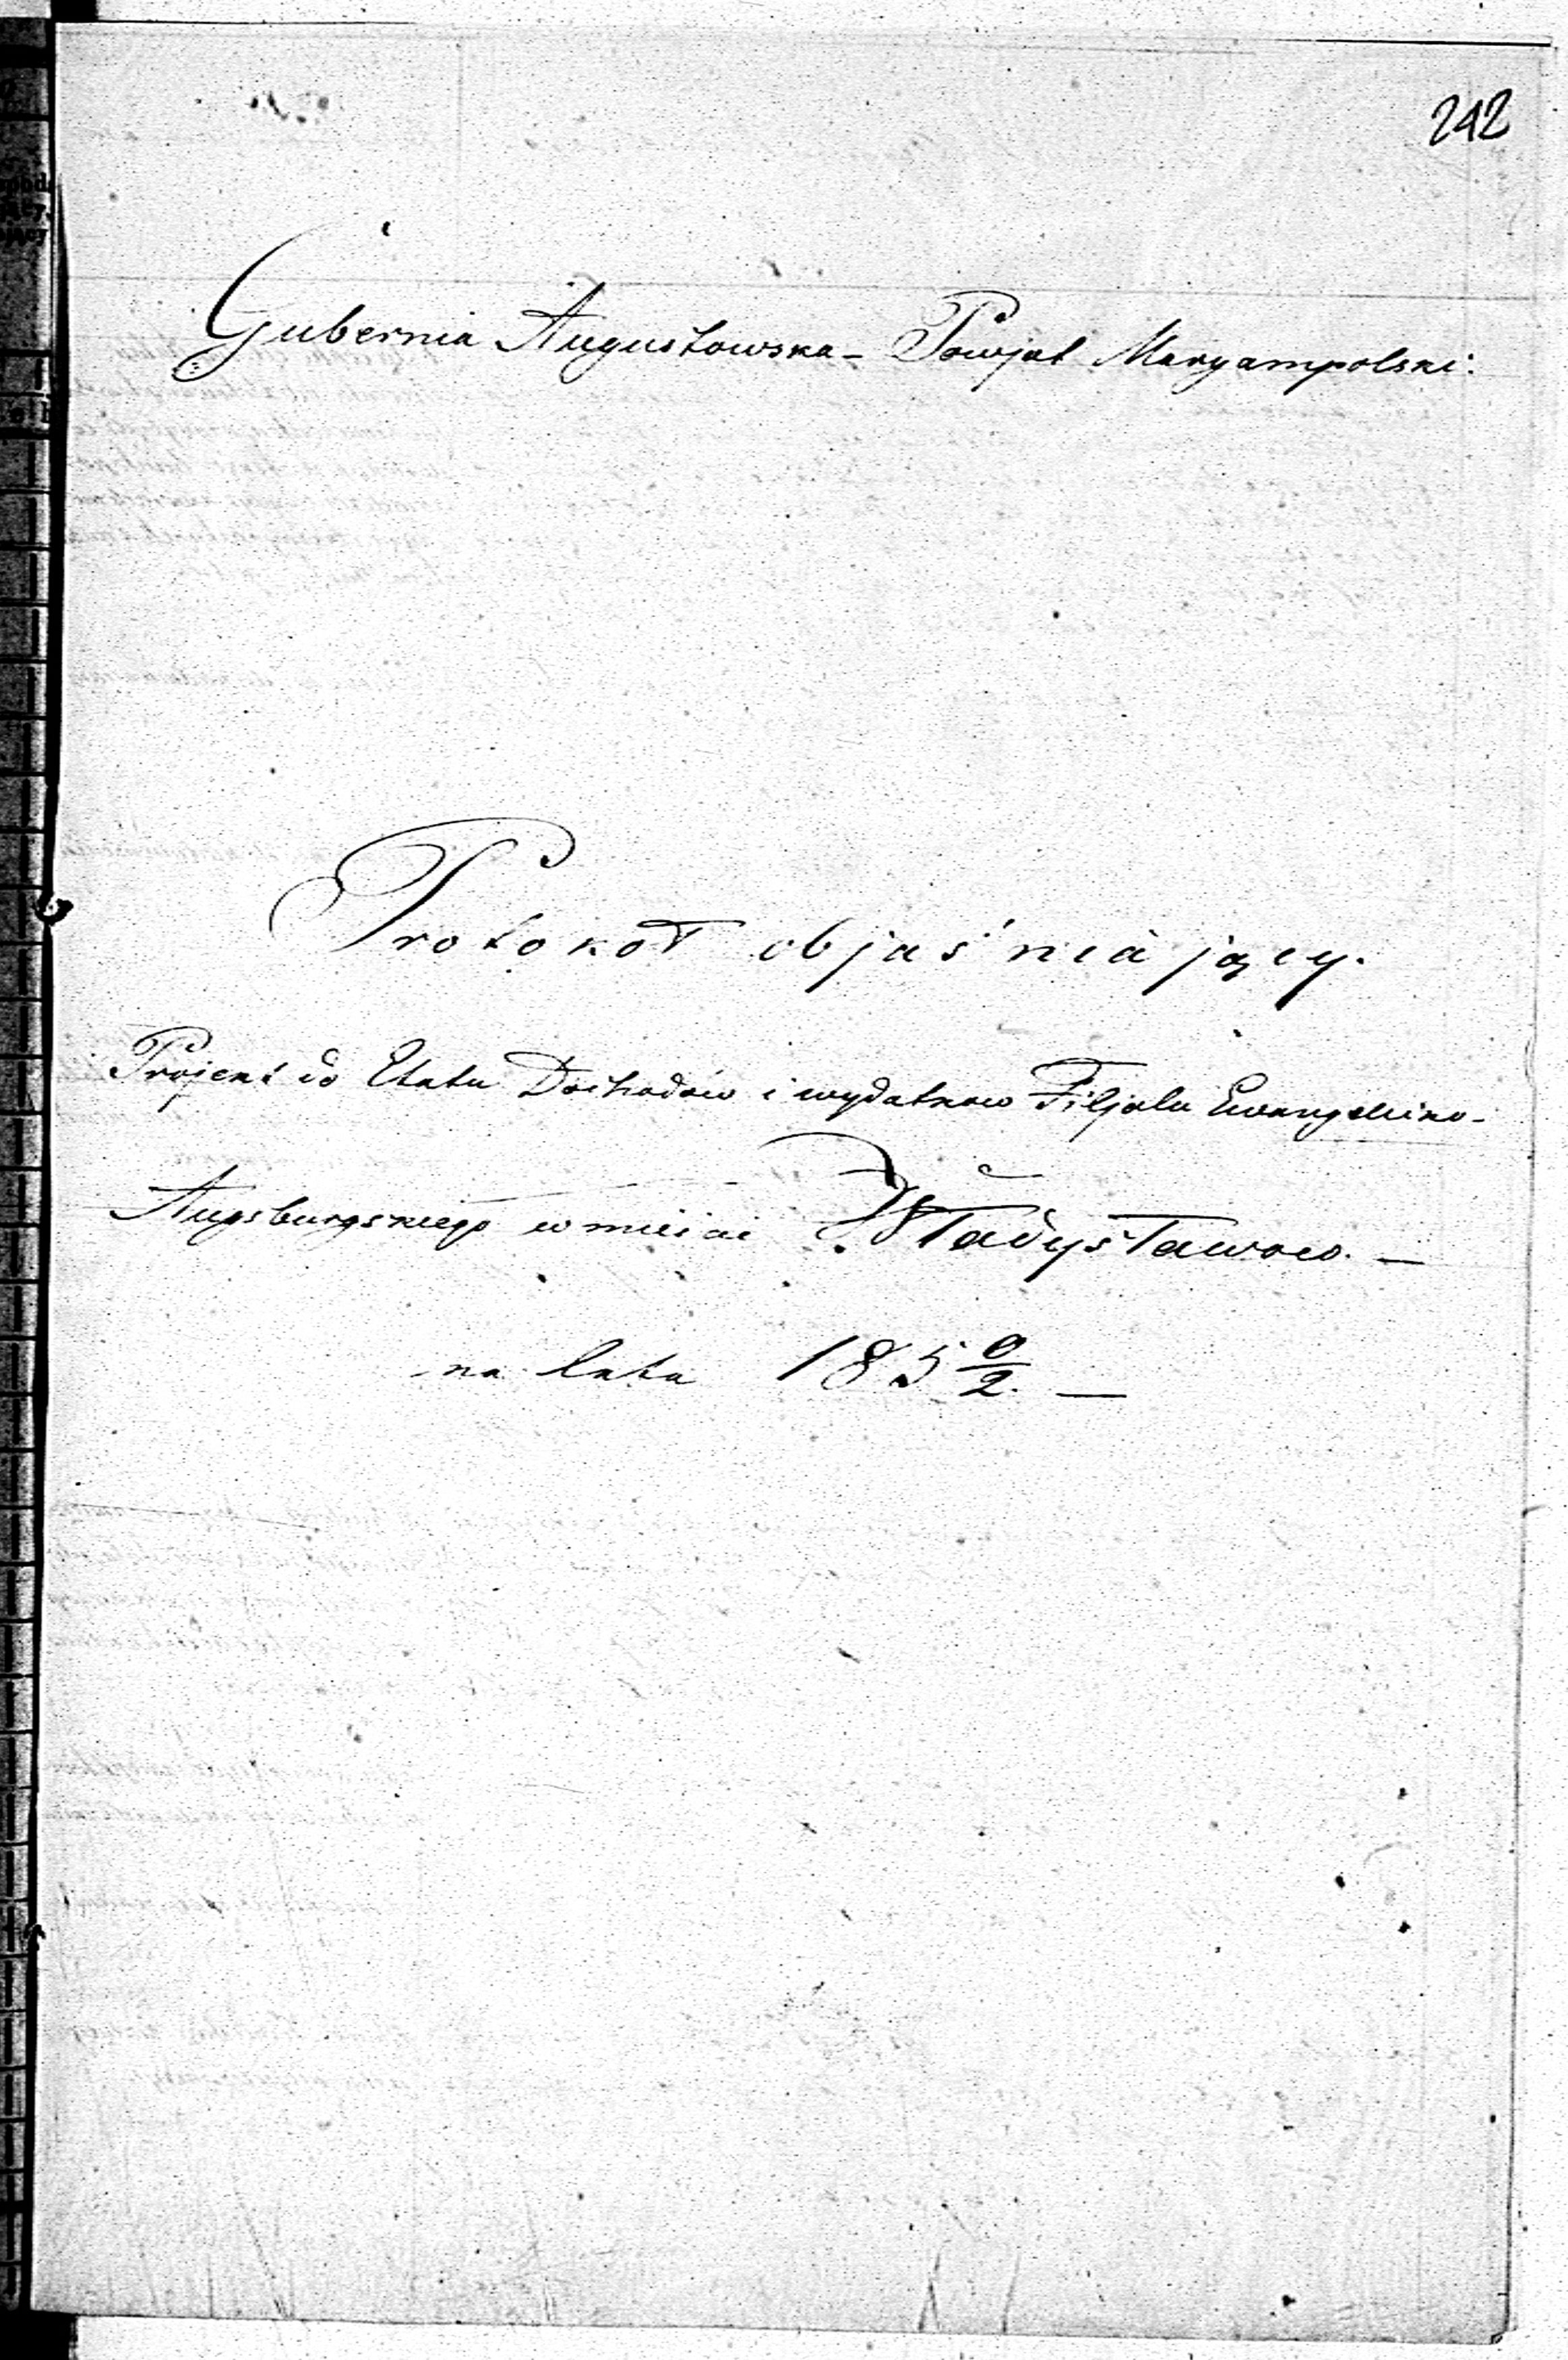 242
Gubernia Augustowska - Powjat Maryampolski:
Protokoł objaśniający.
Projekt do Etatu Dochodów i wydatkow Filjału Ewangelicko-
Augsburgskiego w mieście Władysławow. —
na lata 185 0/2. —